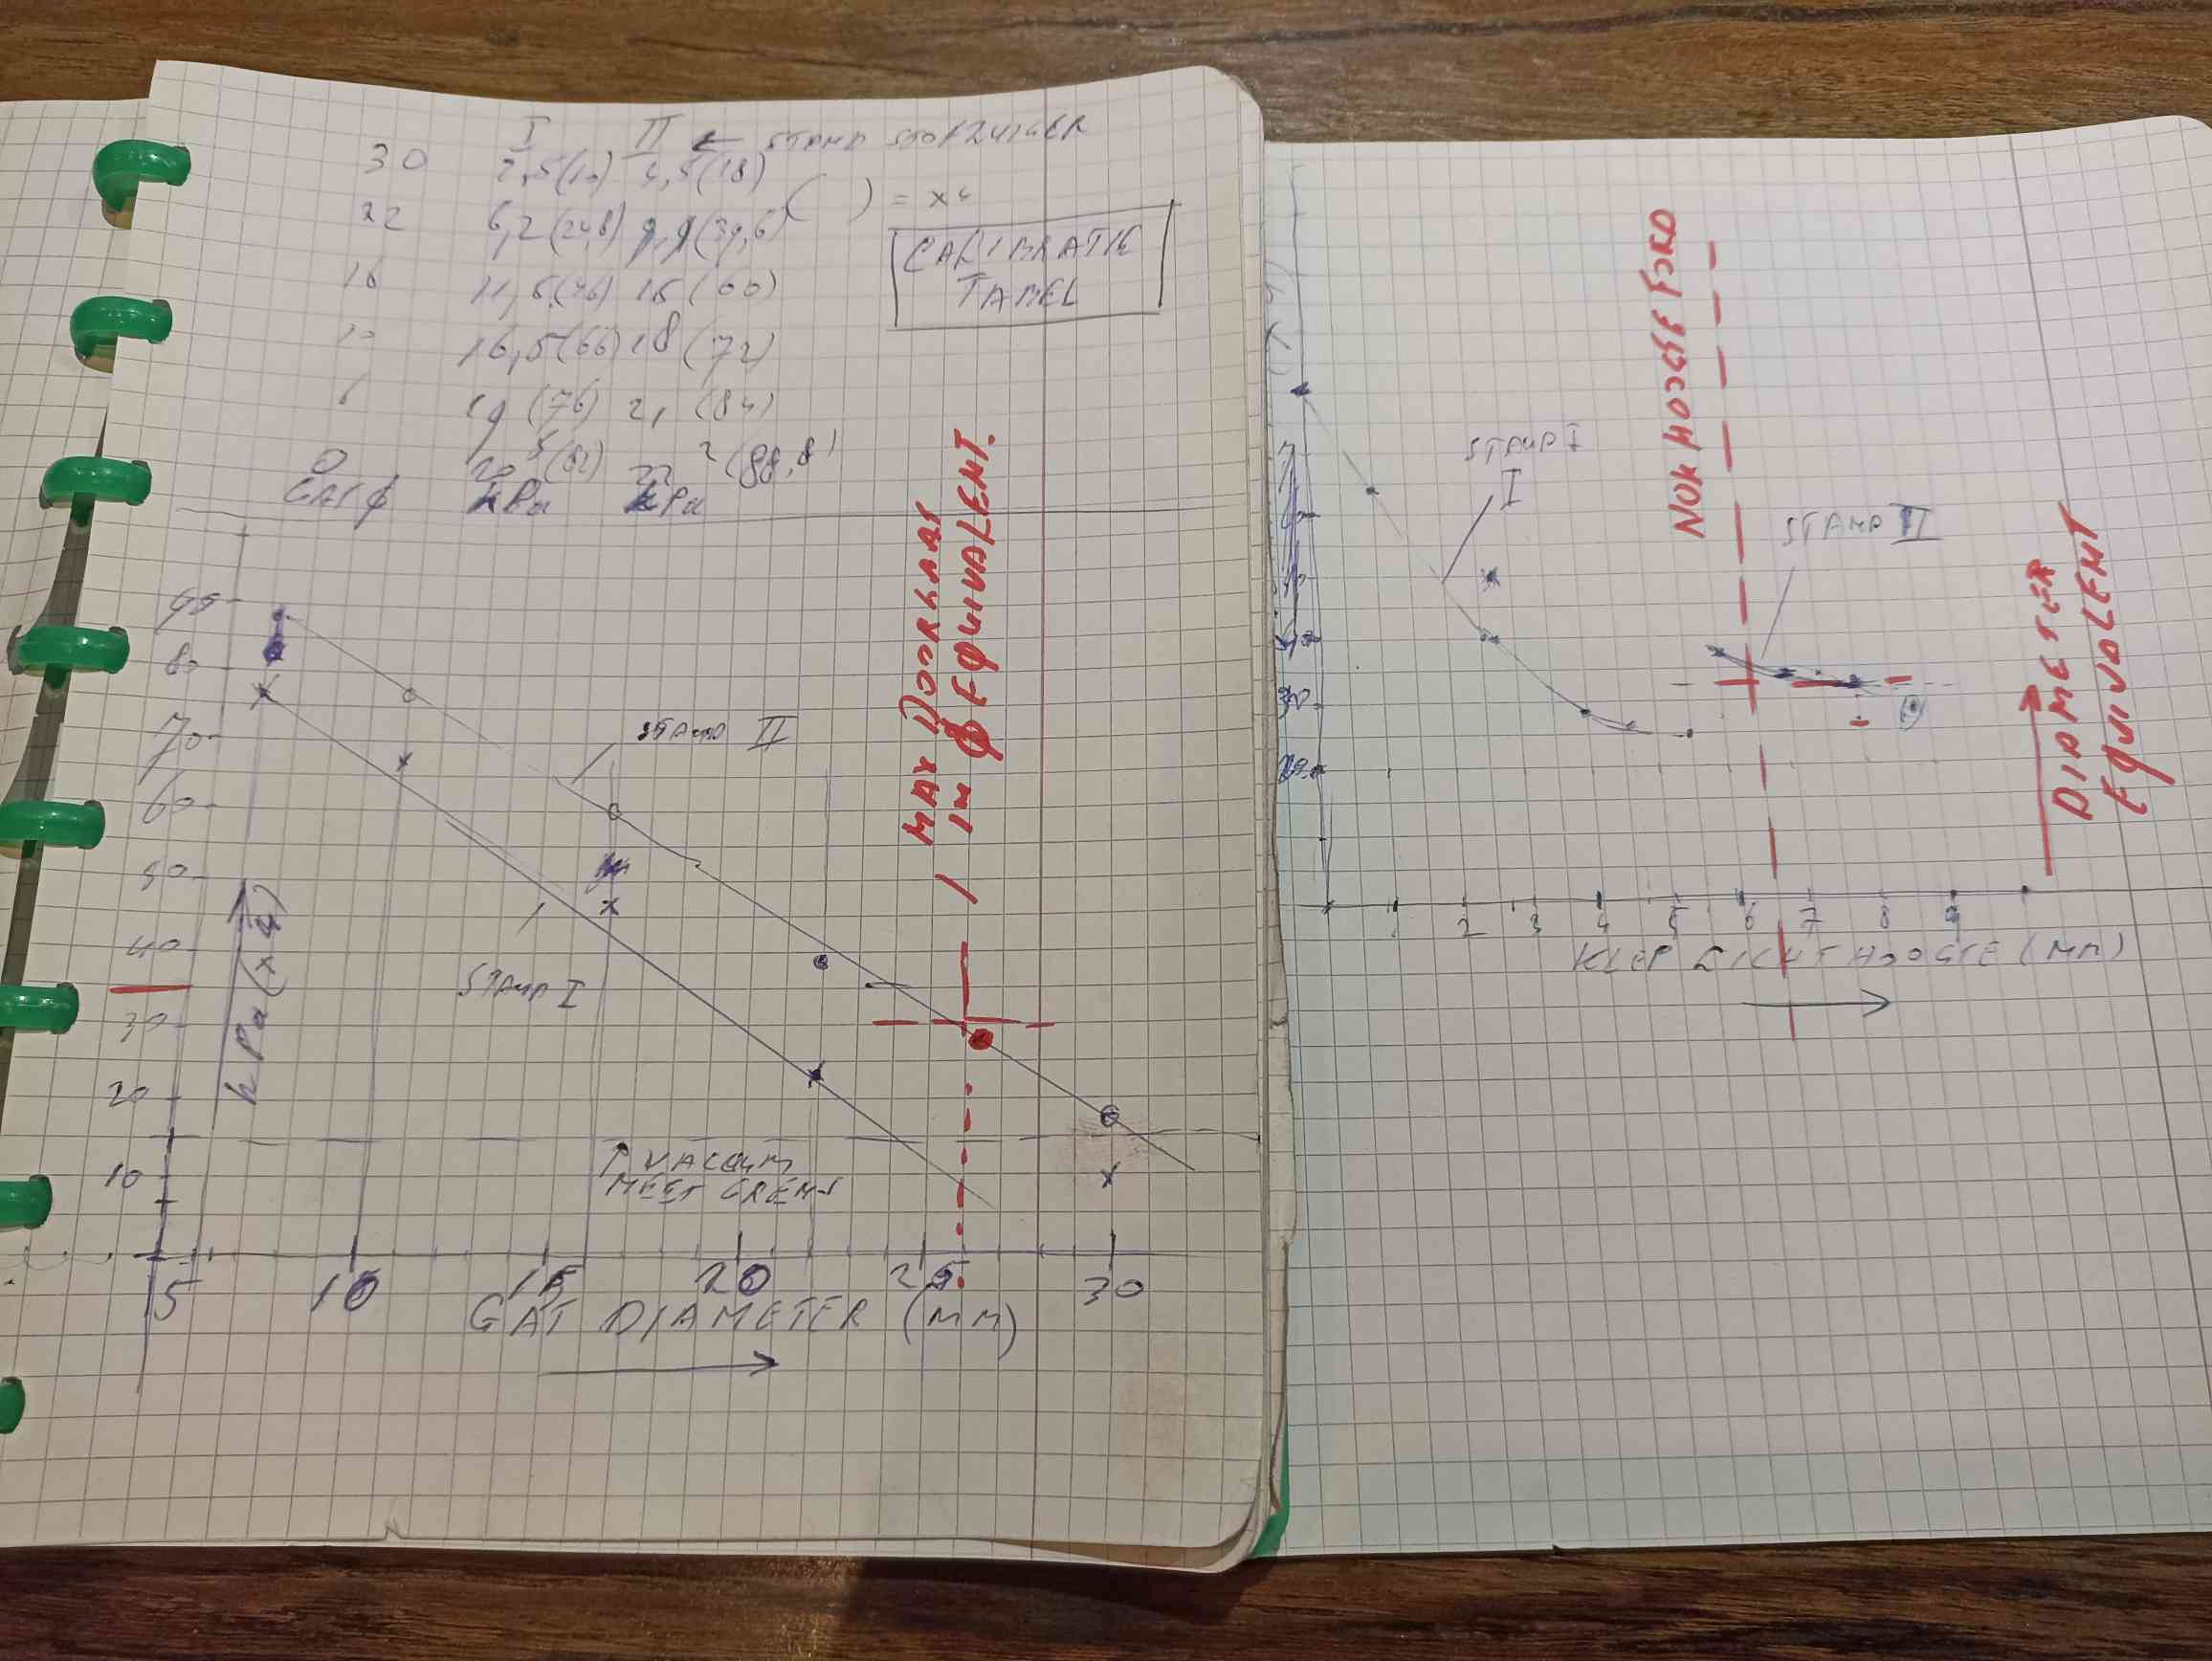 I II ← STAND STOFZUIGER
30 2,5(10) 4,5(18)
22 6,2(24,8) 9,9(39,6) ( ) = x4
16 11,5(46) 15(60)
10 16,5(66) 18(72)
6 19(76) 21(84)
0 20,5(82) 22,2(88,8)
GAT ϕ kPa kPa
CALIBRATIE
TABEL
80
70
60
50
40
30
20
10
kPa (x4)
STAND II
STAND I
MAX DOORLAAT
IN ϕ EQUIVALENT.
↑ VACUUM
MEET GRENS
5 10 15 20 25 30
GAT DIAMETER (MM)
STAND I
I
NOK HOOGTE FORD
STAND II
DIAMETER
EQUIVOLENT
40
30
1 2 3 4 5 6 7 8 9
KLEP LICHT HOOGTE (MM)